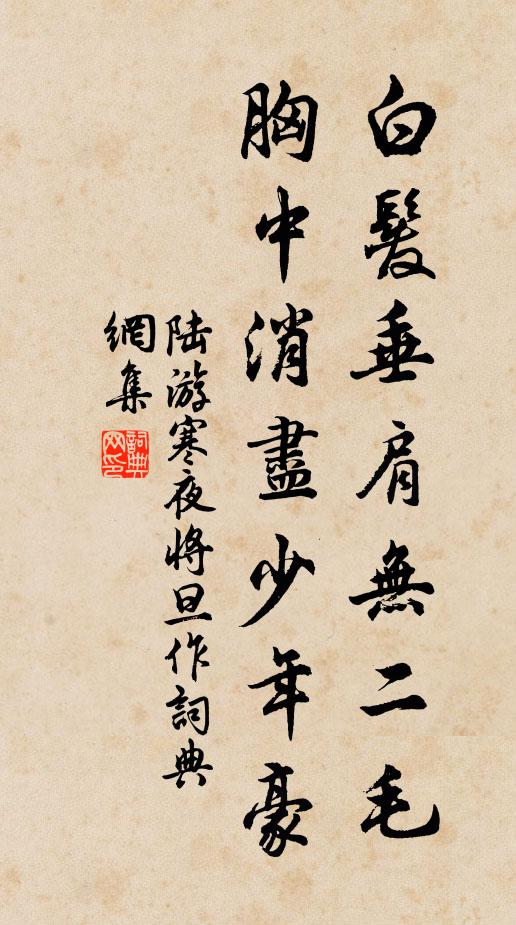 白髮垂肩無二毛
胸中消盡少年豪
陆游寒夜将旦作詞典
網集
詞典
网印